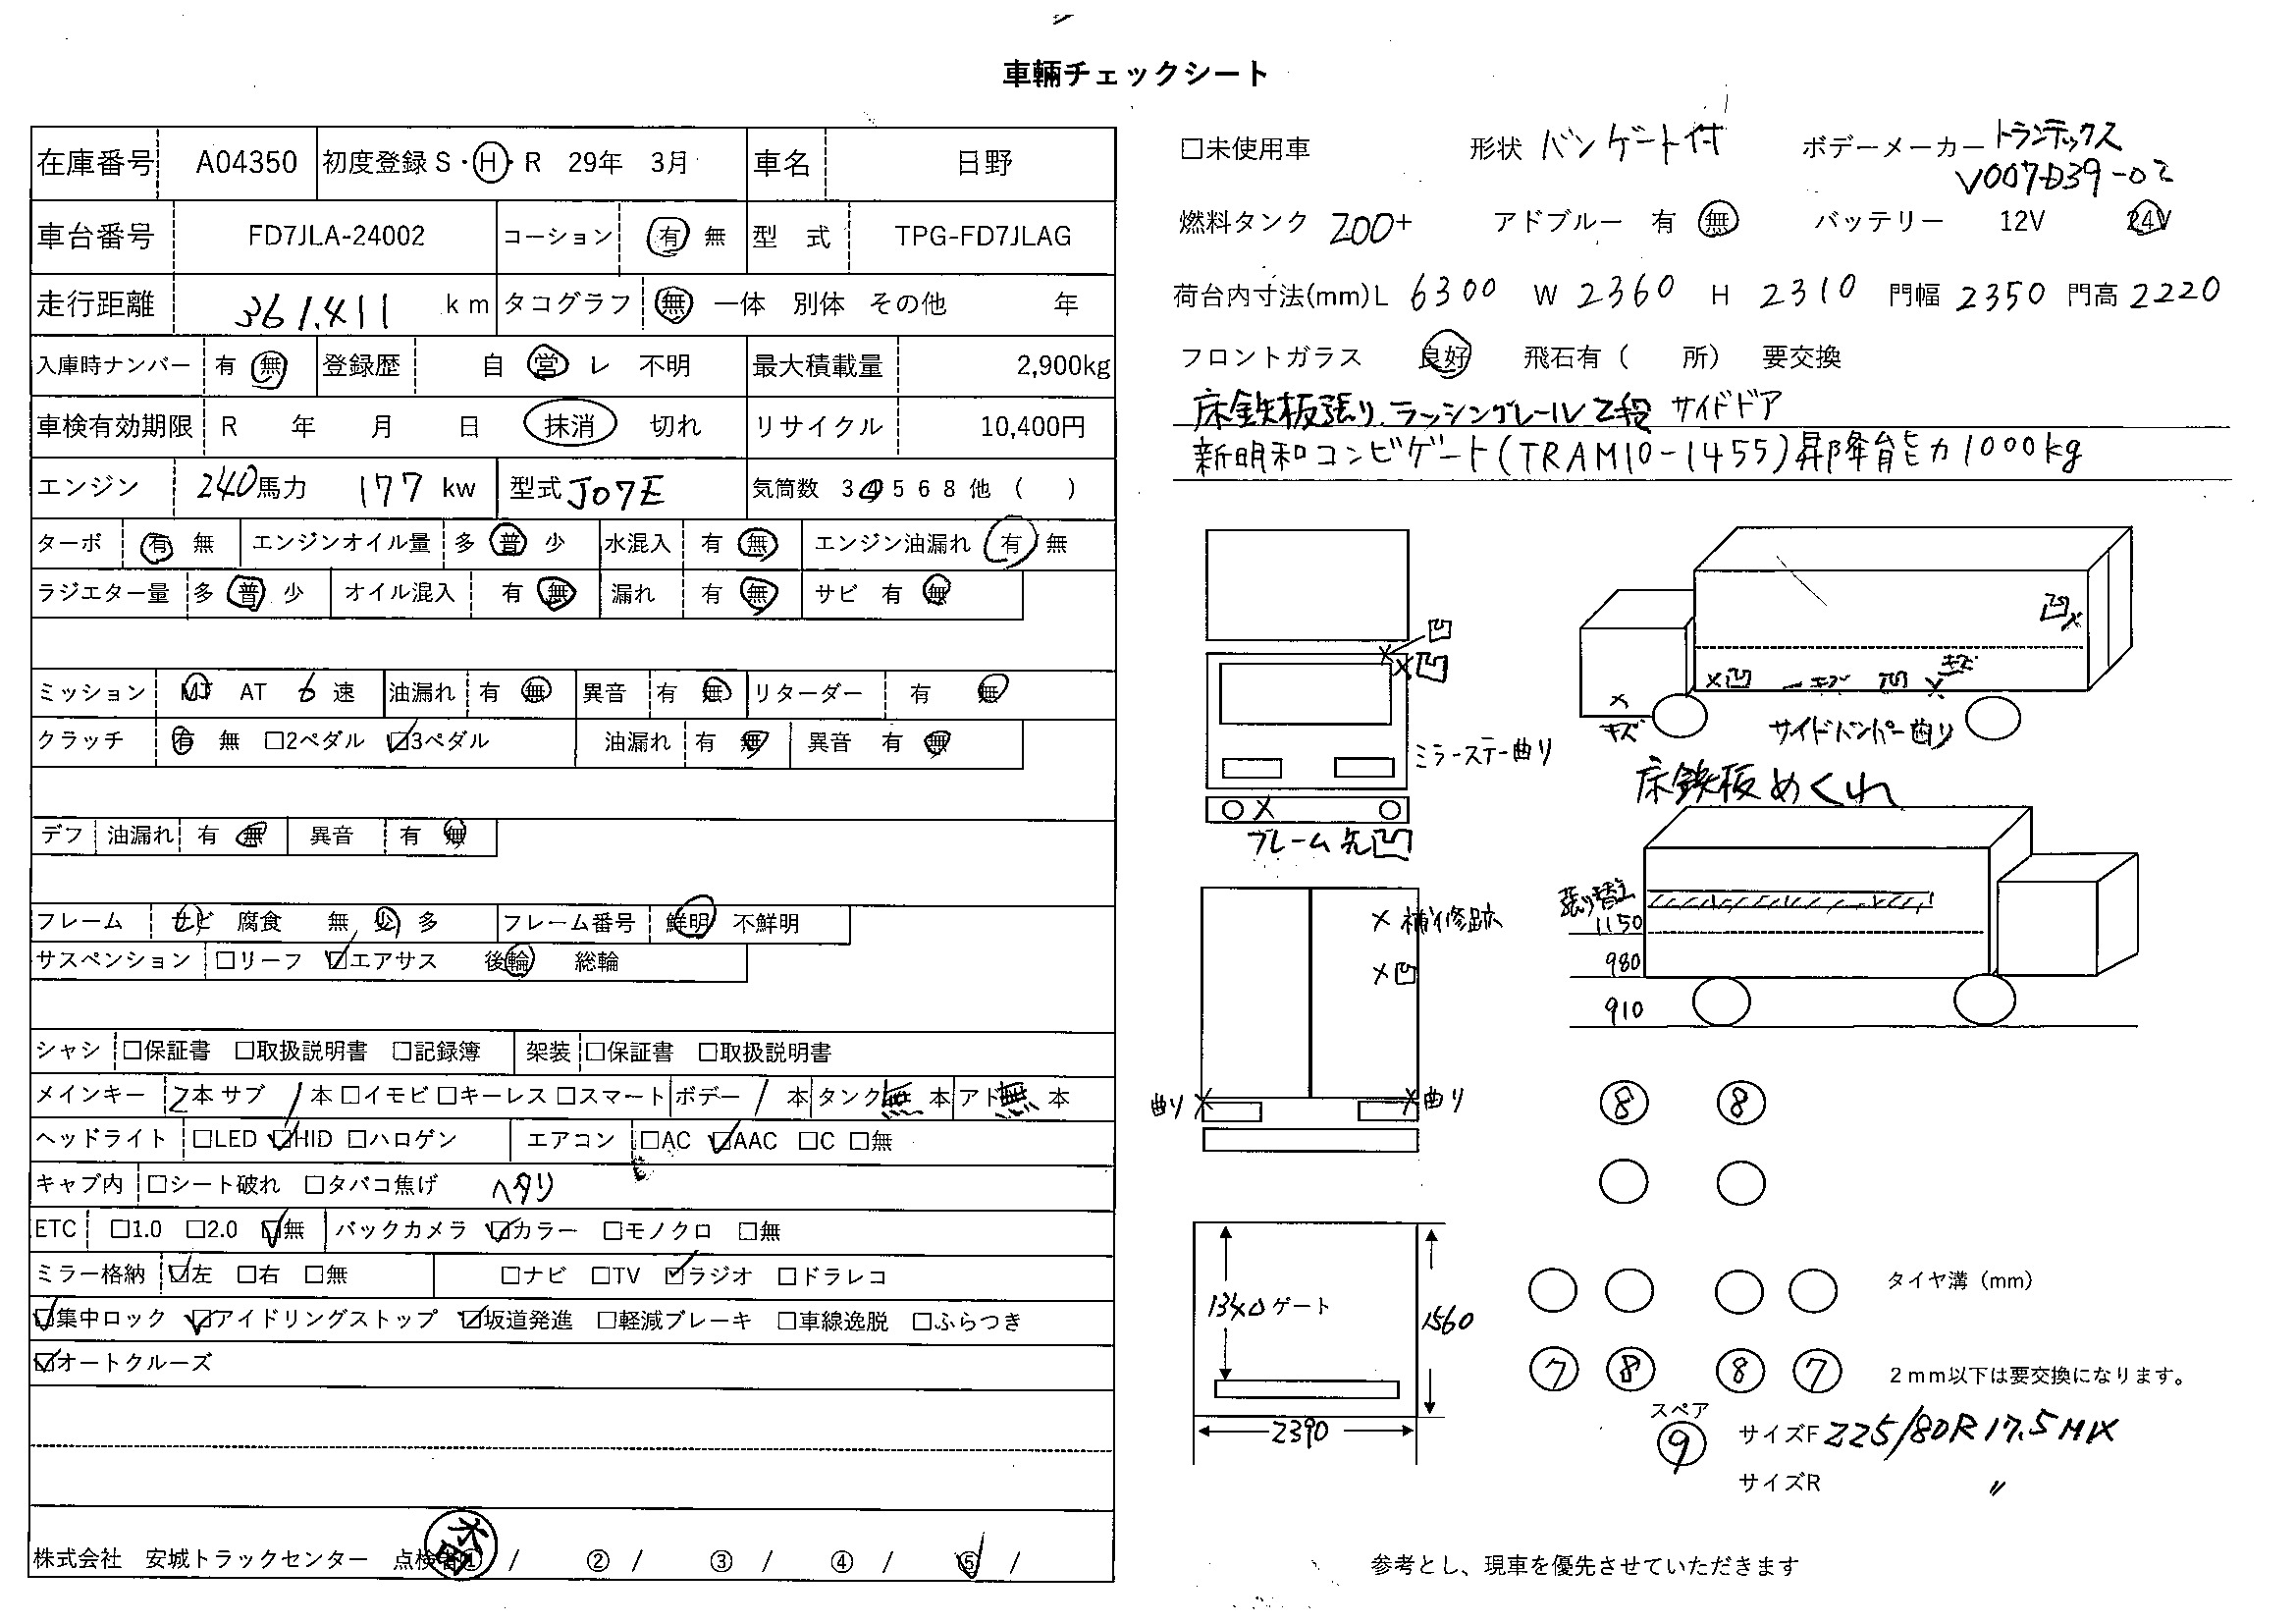 車輛チェックシート
在庫番号 A04350 初度登録 S・H・R 29年 3月 車名 日野
車台番号 FD7JLA-24002 コーション 有 無 型 式 TPG-FD7JLAG
走行距離 361,411 km タコグラフ 無 一体 別体 その他 年
入庫時ナンバー 有 無 登録歴 自 営 レ 不明 最大積載量 2,900kg
車検有効期限 R 年 月 日 抹消 切れ リサイクル 10,400円
エンジン 240馬力 177 kw 型式 J07E 気筒数 3 4 5 6 8 他 ( )
ターボ 有 無 エンジンオイル量 多 普 少 水混入 有 無 エンジン油漏れ 有 無
ラジエター量 多 普 少 オイル混入 有 無 漏れ 有 無 サビ 有 無
ミッション MT AT 6 速 油漏れ 有 無 異音 有 無 リターダー 有 無
クラッチ 有 無 □2ペダル ☑3ペダル 油漏れ 有 無 異音 有 無
デフ 油漏れ 有 無 異音 有 無
フレーム サビ 腐食 無 少 多 フレーム番号 鮮明 不鮮明
サスペンション □リーフ ☑エアサス 後輪 総輪
シャシ □保証書 □取扱説明書 □記録簿 架装 □保証書 □取扱説明書
メインキー 2本 サブ 1本 □イモビ □キーレス □スマート ボデー 1 本 タンク 無 本 アド 無 本
ヘッドライト □LED ☑HID □ハロゲン エアコン □AC ☑AAC □C □無
キャブ内 □シート破れ □タバコ焦げ ヘタリ
ETC □1.0 □2.0 ☑無 バックカメラ ☑カラー □モノクロ □無
ミラー格納 ☑左 □右 □無 □ナビ □TV ☑ラジオ □ドラレコ
☑集中ロック ☑アイドリングストップ ☑坂道発進 □軽減ブレーキ □車線逸脱 □ふらつき
☑オートクルーズ
株式会社 安城トラックセンター 点検者① / ② / ③ / ④ / ⑤ /
□未使用車 形状 バンゲート付 ボデーメーカー トランテックス
V007-D39-02
燃料タンク 200+ アドブルー 有 無 バッテリー 12V 24V
荷台内寸法(mm) L 6300 W 2360 H 2310 門幅 2350 門高 2220
フロントガラス 良好 飛石有 ( 所) 要交換
床鉄板張り、ラッシングレール2段 サイドドア
新明和コンビゲート(TRAM10-1455)昇降能力1000kg
凹
×凹
ミラーステー曲り
×
フレーム先凹
凹×
×凹 キズ 凹 × キズ
× キズ
サイドバンパー曲り
床鉄板めくれ
張り替え
1150
980
910
×補修跡
×凹
曲り× ×曲り
8 8
1340 ゲート 1560
2390
タイヤ溝(mm)
7 8 8 7
2mm以下は要交換になります。
スペア
9
サイズF 225/80R17.5 MIX
サイズR 〃
参考とし、現車を優先させていただきます